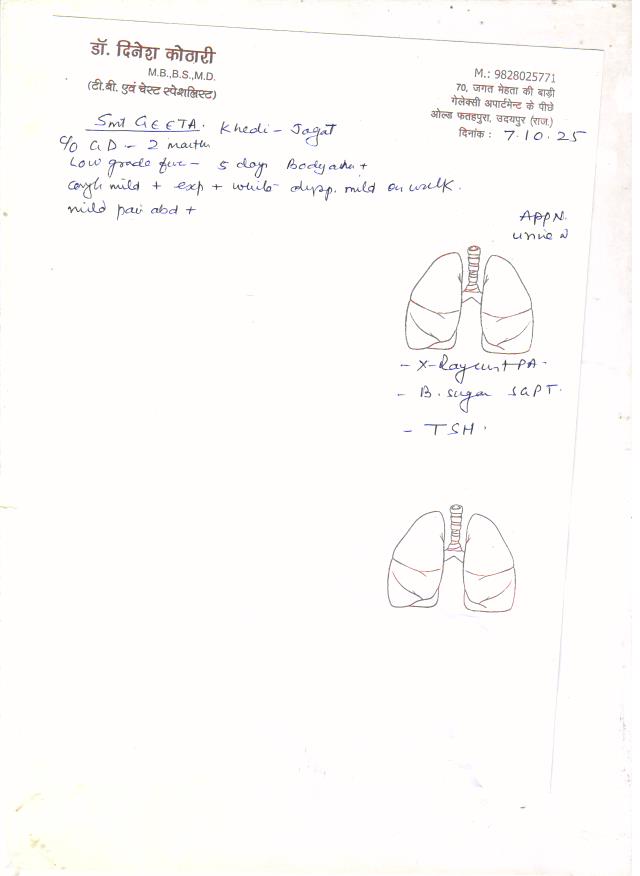 डॉ. दिनेश कोठारी
M.B.,B.S.,M.D.
(टी.बी. एवं चेस्ट स्पेशलिस्ट)
M.: 9828025771
70, जगत मेहता की बाड़ी
गेलेक्सी अपार्टमेन्ट के पीछे
ओल्ड फतहपुरा, उदयपुर (राज.)
दिनांक : 7.10.25
Smt GEETA. Khedi - Jagat
c/o GD - 2 month
Low grade fever - 5 day Bodyache +
cough mild + exp + white - dysp. mild on walk.
mild pain abd +
App N.
urine N
- X-Ray chest PA -
- B. sugar SGPT.
- TSH.